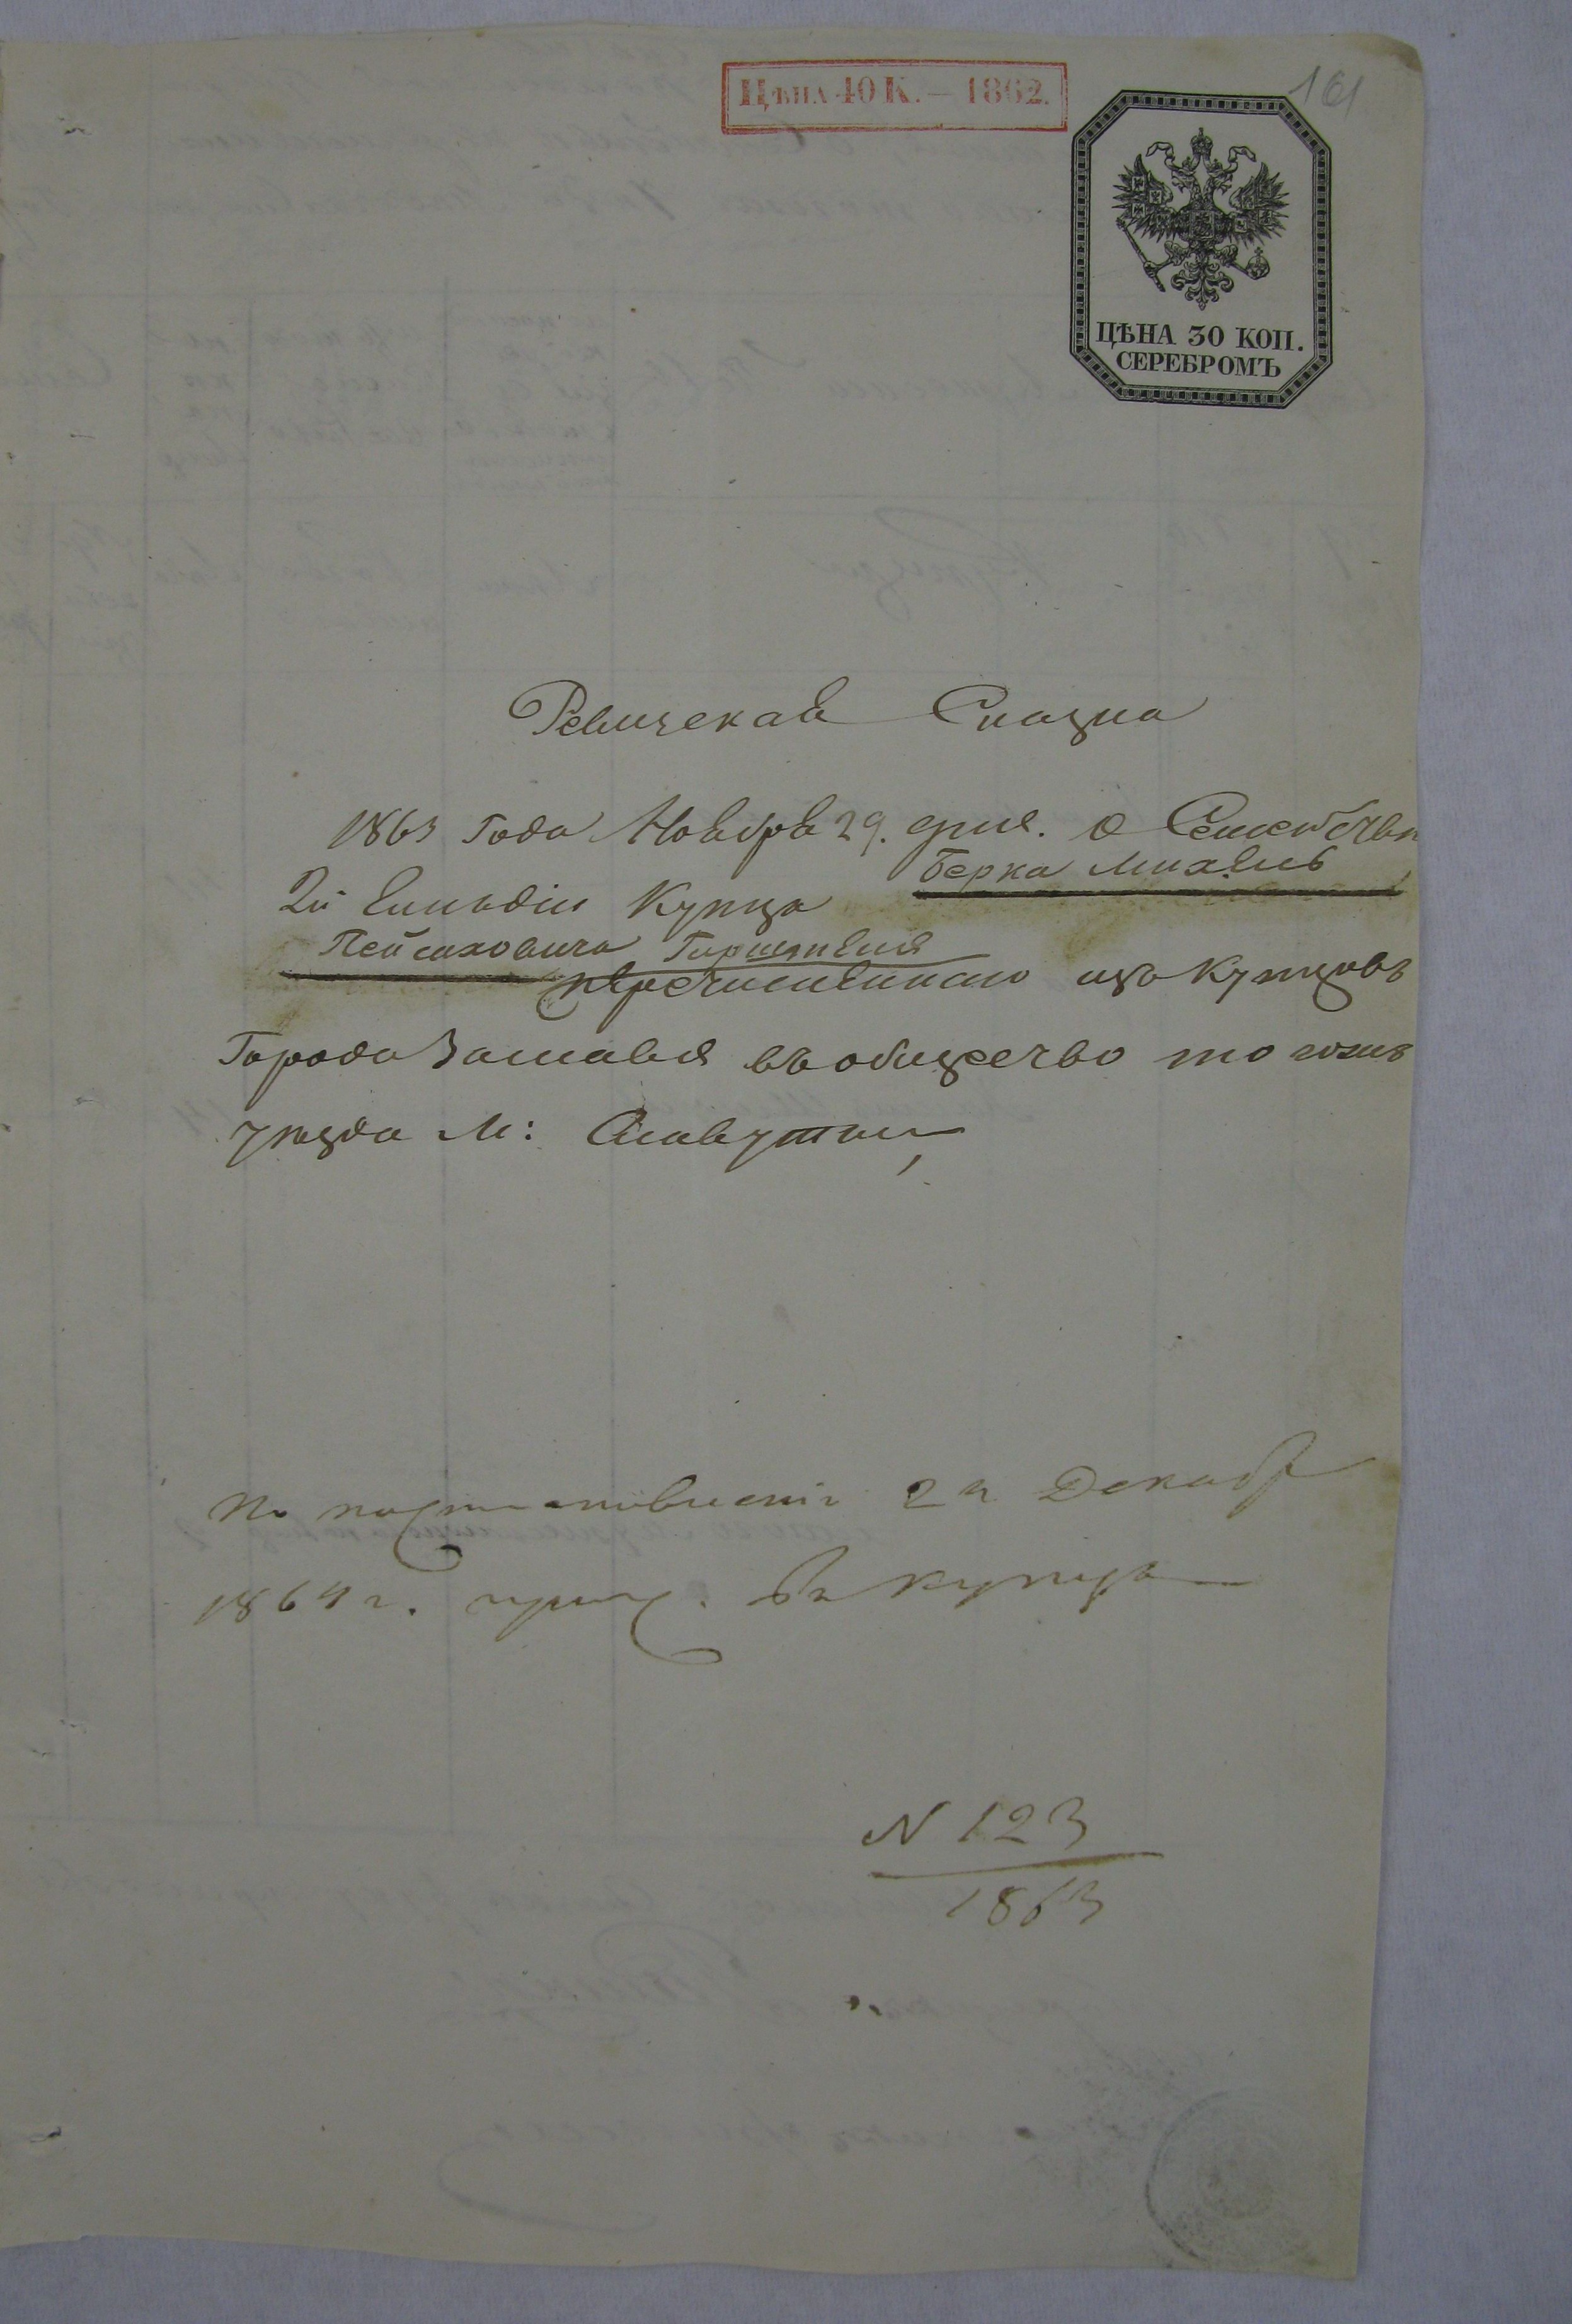 Цѣна 40 К. — 1862.
161
ЦѢНА 30 КОП.
СЕРЕБРОМЪ
Ревизская Сказка
1863 Года Ноября 29. дня. о Семействѣ
2й Гильдіи Купца Берка Михель
Пейсаховича Горштейна
перечисленного изъ Купцовъ
Города Заславля въ общество того же
уѣзда М: Славуты,
По постановленію 24 Декабр
1864 г. прич. въ купцы
N 123
1863